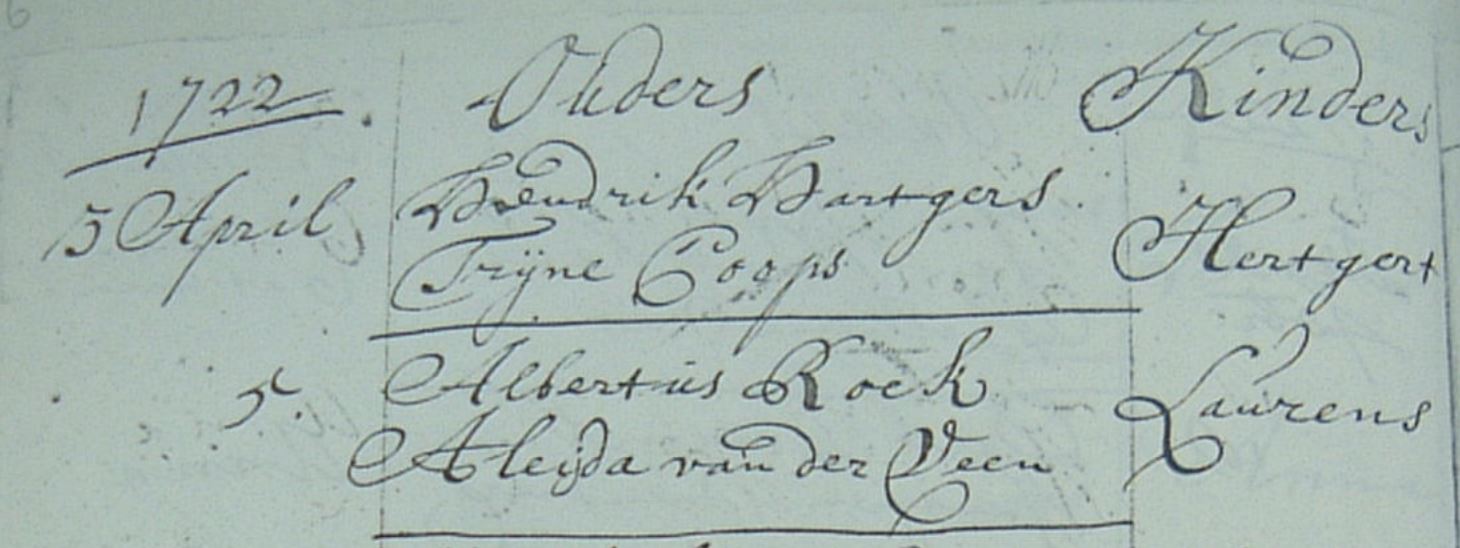 1722. Ouders Kinders
3 April Hendrik Hartgers.
Tryne Coops Hertgert
5. Albertus Roek Laurens
Aleyda van der Veen